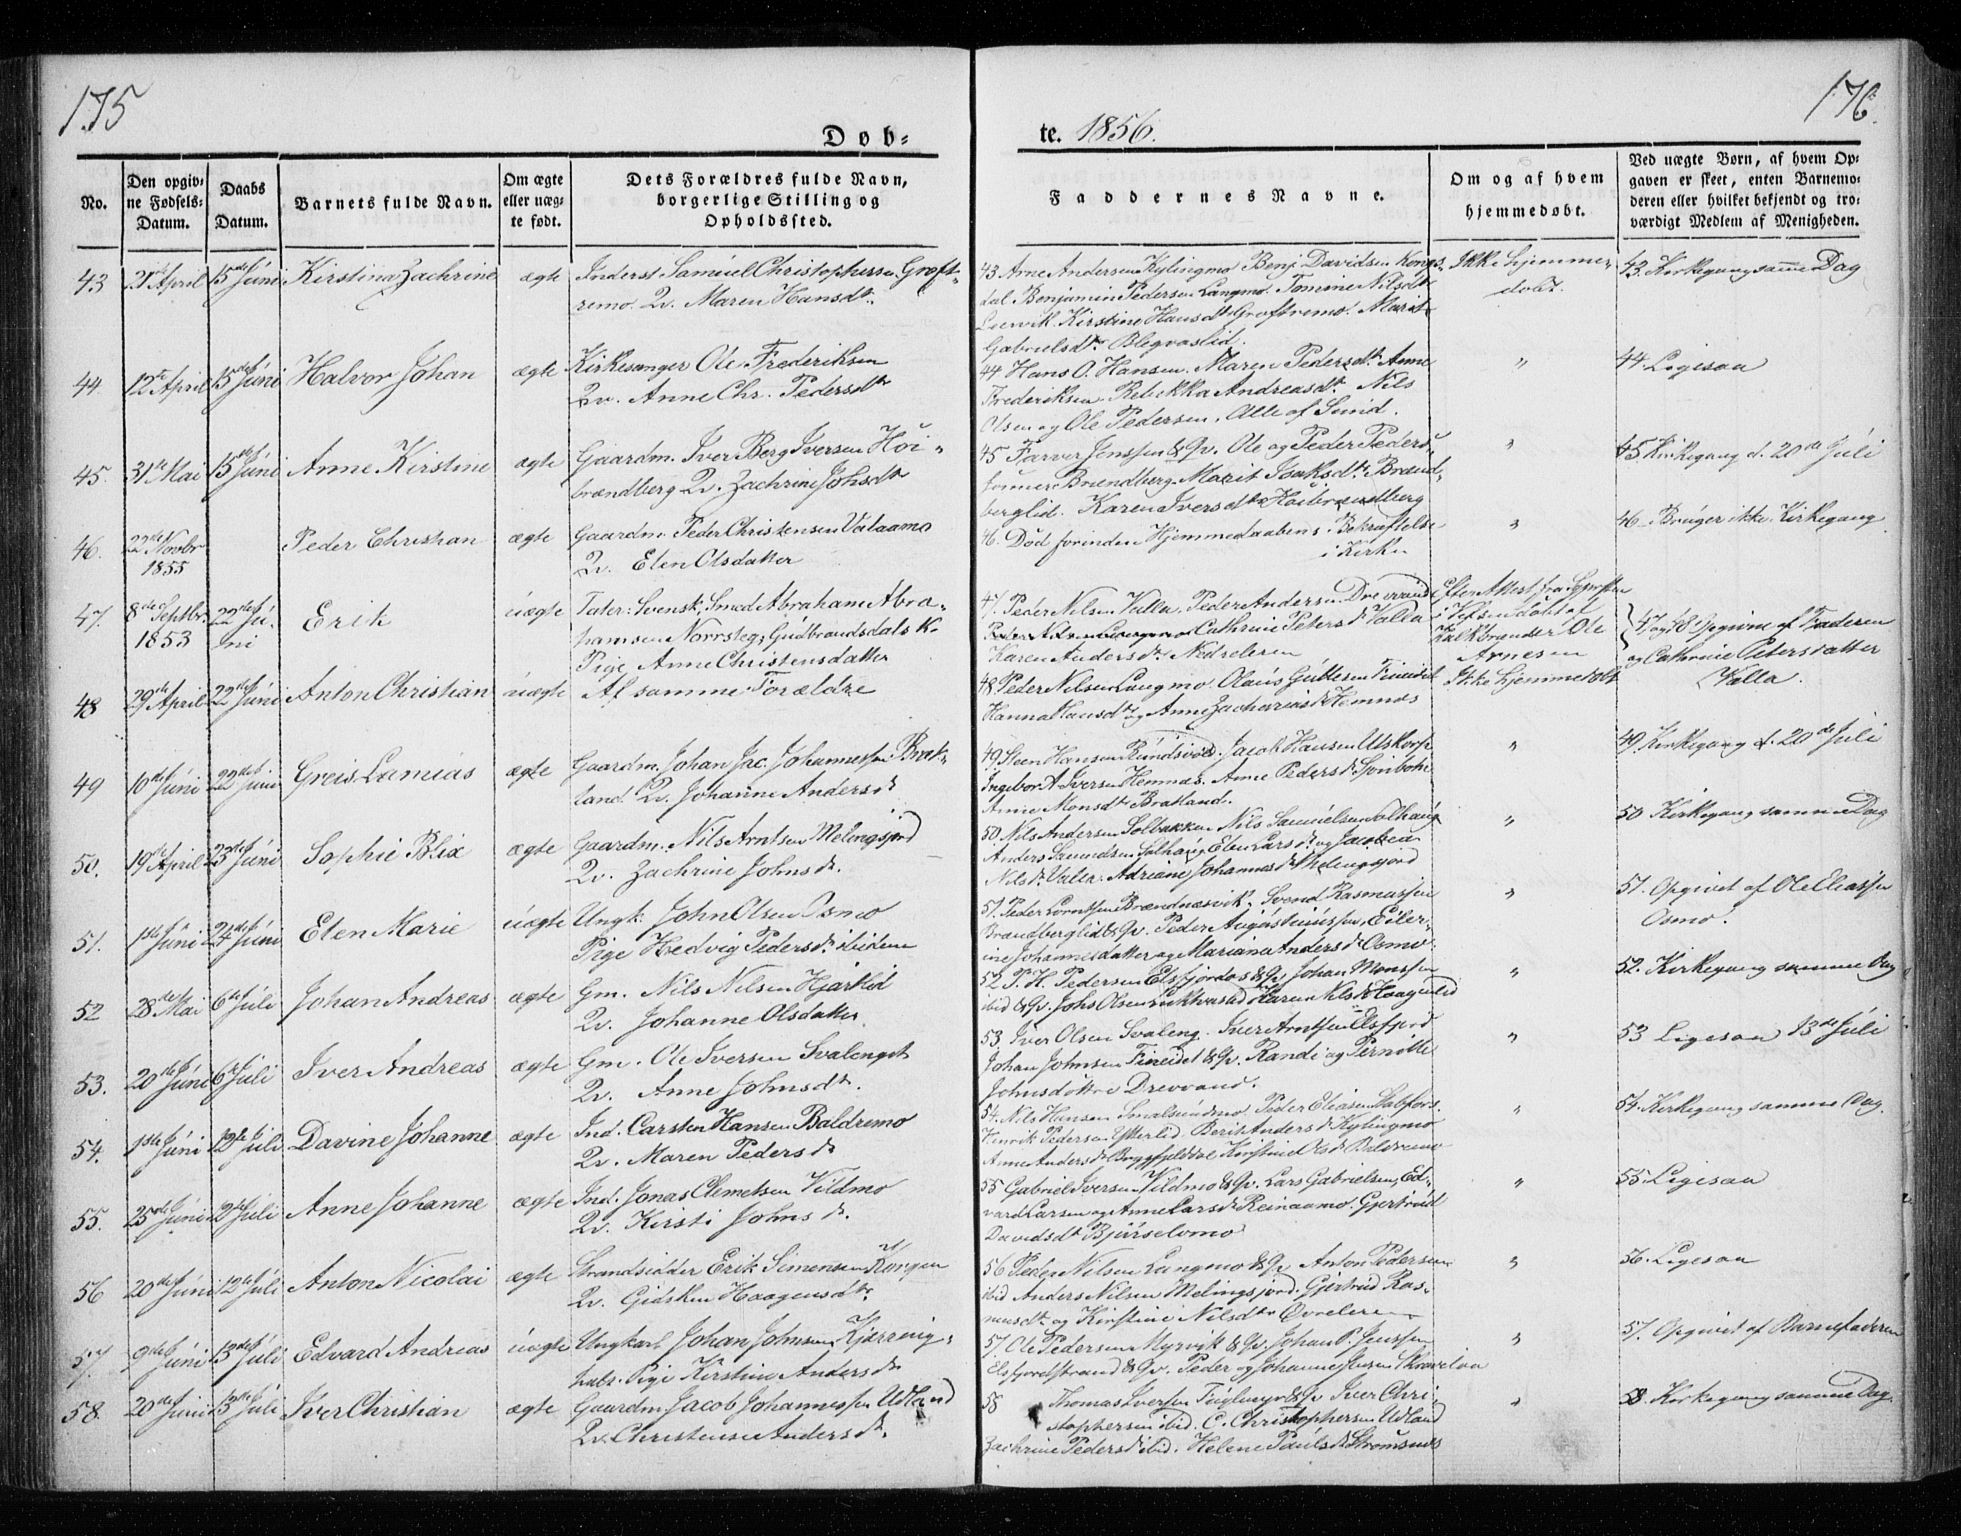 175
176.
Døb=
te. 1856.
No.
Den opgiv=
ne Fødsels=
Datum.
Daabs
Datum.
Barnets fulde Navn.
Om ægte
eller uæg=
te født.
Dets Forældres fulde Navn,
borgerlige Stilling og
Opholdssted.
Faddernes Navne.
Om og af hvem
hjemmedøbt.
Ved uægte Børn, af hvem Op=
gaven er skeet, enten Barnemo=
deren eller hvilket bekjendt og tro=
værdigt Medlem af Menigheden.
43 21de April 15de Júni Kirstina Zachrine ægte Inderst Samúel Christophersen Grøft-
remo Qv. Maren Hansdtr.
43 Arne Andersen Kylingmo Benj. Davidsen Kongs-
dal Benjamin Pedersen Langmo. Tomine Nilsdtr
Leervik. Kirstine Hansdtr Grøftremo. Marit
Gabrielsdtr Blegvaslid.
Ikke hjemme-
døbt.
43. Kirkegang samme Dag
44. 12te April 15de Júni Halvor Johan ægte Kirkesanger Ole Frederiksen
Qv. Anne Chr. Pedersdtr
44 Hans O. Hansen. Maren Pedersdtr Anne
Frederiksen Rebekka Andreasdtr. Nils
Olsen og Ole Pedersen. Alle af Sund.
"
44. Ligesaa
45. 31te Mai 15de Júni Anne Kirstine ægte Gaardm. Iver Berg Iversen Høi-
brændberg Qv. Zachrine Johsdtr
45 Farver Jenssen & Qv. Ole og Peder Peders-
sønner Brændberg. Marit Isaksdtr Brænd-
berglid. Karen Iversdtr Høibrændberg
"
45 Kirkegang d. 20de Júli
46. 22de Novbr
1855
Peder Christian ægte Gaardm. Peder Christensen Valaamo
Qv. Elen Olsdatter
46. Død forinden Hjemmedaabens Bekræftelse
i Kirken
"
46. Brúger ikke Kirkegang
47. 8de Septbr.
1853
22de Jú-
ni
Erik úægte Tater: Svensk; Smed Abraham Abra-
hamsen Norrsteg; Gúdbrandsdalsk.
Pige Anne Christensdatter
47. Peder Nilsen Valla. Peder Andersen Drevvand
Cathrine Petersdr Valla
Karen Andersdtr. Nedreleren
Efter Attest fra
i Vefsen døbt af
Kalkbrænder Ole
Arnesen
47 og 48 Opgivne af Faderen
og Cathrine Petersdatter
Valla.
48 29de April 22de Júni Anton Christian úægte Af samme Forældre
48 Peder Nilsen Langmo. Olaús Gúttesen Fineidet
Hanna Hansdtr og Anne Zachariasdr Hemnæs
Ikke hjemmedøbt
49 10de Júni 22de Júni Greis Lamias ægte Gaardm. Johan Jac. Johannessen Brat-
land. Qv. Johanne Andersdr
49 Steen Hansen Búndsvold. Jacob Hansen Utskarp
Ingebor A. Iversen Hemnæs. Anne Pedersdr
Anne Monsdtr Bratland.
"
49. Kirkegang d. 20de Júli
50. 19de April 23de Júni Sophie Blix ægte Gaardm. Nils Arntsen Melingsjord
Qv. Zachrine Johnsdr.
50. Nils Andersen Solbakken Nils Samúelsen Solhaúg
Anders Samúelsen Solhaúg Elen Larsdr og Jacobea
Nilsdr Valla. Adriane Johannesdr Melingsjord
"
50 Kirkegang samme Dag
51. 1ste Júni 24de Júni Elen Marie úægte Úngk. John Olsen Osmo
Pige Hedvig Pedersdr. ibidem
51. Peder Lorntsen Brændnæsvik, Svend Rasmússen
Brændberglid & Qv. Peder Aúgústinússen, Eiler-
ine Johannesdatter og Mariana Andersdr Osmo.
"
51. Opgivet af Ole Eliassen
Osmo.
52 28de Mai 6te Júli Johan Andreas ægte Gm. Nils Nilsen Hjartlid
Qv. Johanne Olsdatter
52 P. H. Pedersen Elsfjordøs & Qv. Johan Monssen
ibid & Qv. Johs Olsen Karen Nilsdr
"
52. Kirkegang samme Dag
53. 20de Júni 6te Júli Iver Andreas ægte Gm. Ole Iversen Svalenget
Qv. Anne Johnsdtr.
53. Iver Olsen Svaleng. Iver Arntsen Elsfjord
Johan Johnsen Fineidet & Qv. Randi og Pernille
Johnsdøttre Drevvand.
"
53 Ligesaa 13de Júli
54. 1ste Júni 12te Júli Davine Johanne ægte Ind. Carsten Hansen Baldremo
Qv. Maren Pedersdr
54. Nils Hansen Smalsúndmo Peder Eliasen Stabfors.
Henrik Pedersen Ytterlid. Berit Andersdr Kylingmo
Anne Andersdr Bryggfjelddal Kirstine Olsdr Baldremo
"
54. Kirkegang samme Dag.
55. 25de Júni 12te Júli Anne Johanne ægte Ind. Jonas Clemetsen Vildmo
Qv. Kirsti Johnsdr.
55 Gabriel Iversen Vildmo & Qv. Lars Gabrielsen, Ed-
vard Larsen og Anne Larsdr Reinaamo. Gjertrúd
Davidsdtr Bjúrselvmo
"
55. Ligesaa
56 20de Júni 12te Júli Anton Nicolai ægte Strandsidder Erik Simonsen Kongen
Qv. Gidsken Haagensdtr.
56 Peder Nilsen Langmo & Qv. Anton Pedersen
ibid Anders Nilsen Melingsjord. Gjertrúd Ras-
músdtr. og Kirstine Nilsdtr Øvreleren
"
56. Ligesaa
57. 9de Júni 13de Júli Edvard Andreas úægte Ungkarl Johan Johnsen Kjerring-
hals. Pige Kirstine Andersdr
57. Ole Pedersen Myrvik & Qv. Johan P. Jenssen
Elsfjordstrand & Qv. Peder og Johanne Jensen
"
57. Opgivet af Barnefaderen
58. 20de Júni 13de Júli Iver Christian ægte Gaardm. Jacob Johannessen Udland
Qv. Christense Andersdr.
58 Thomas Iversen Fúglmyr & Qv. Iver Chri-
stophersen ibid. C. Christophersen Udland
Zachrine Pedersdr ibid. Helene Paúlsdr Strømsnæs
"
58. Kirkegang samme Dag.